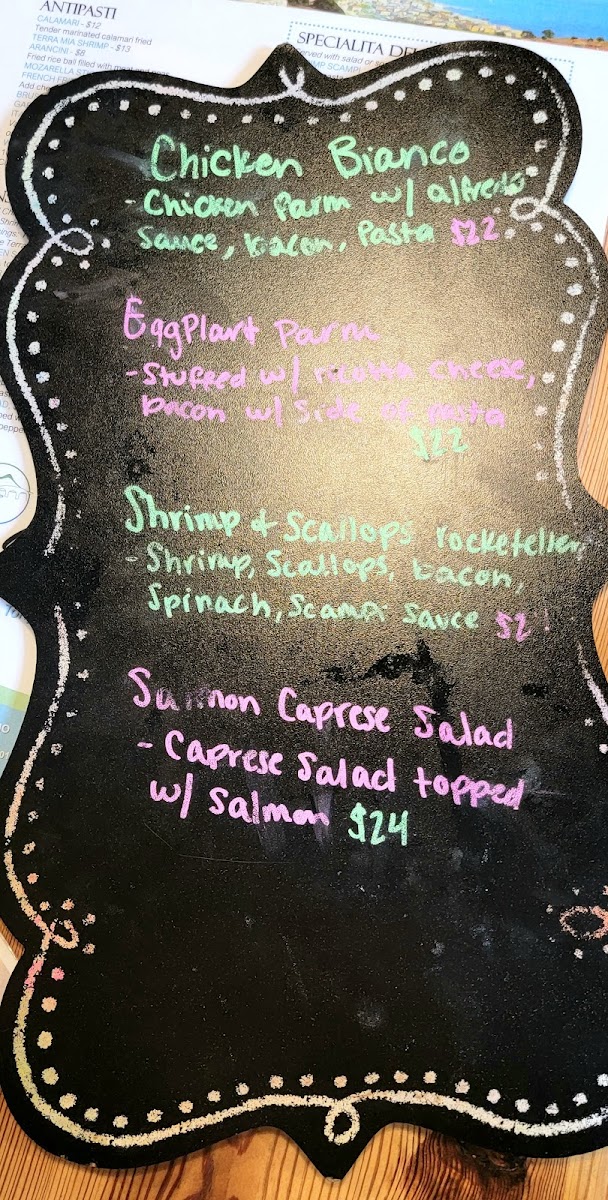 ANTIPASTI
CALAMARI - $12
Tender marinated calamari fried
TERRA MIA SHRIMP - $13
ARANCINI - $8
Fried rice ball filled with meat
MOZARELLA
FRENCH
SPECIALITA
served with salad or
SCAMPI
Chicken Bianco
- Chicken Parm w/ alfredo
Sauce, bacon, Pasta $22
EggPlant Parm
- Stuffed w/ ricotta cheese,
bacon w/ Side of Pasta
$22
Shrimp & Scallops rockefeller
- Shrimp, Scallops, bacon,
Spinach, Scampi Sauce
Salmon Caprese Salad
- Caprese Salad topped
w/ Salmon $24